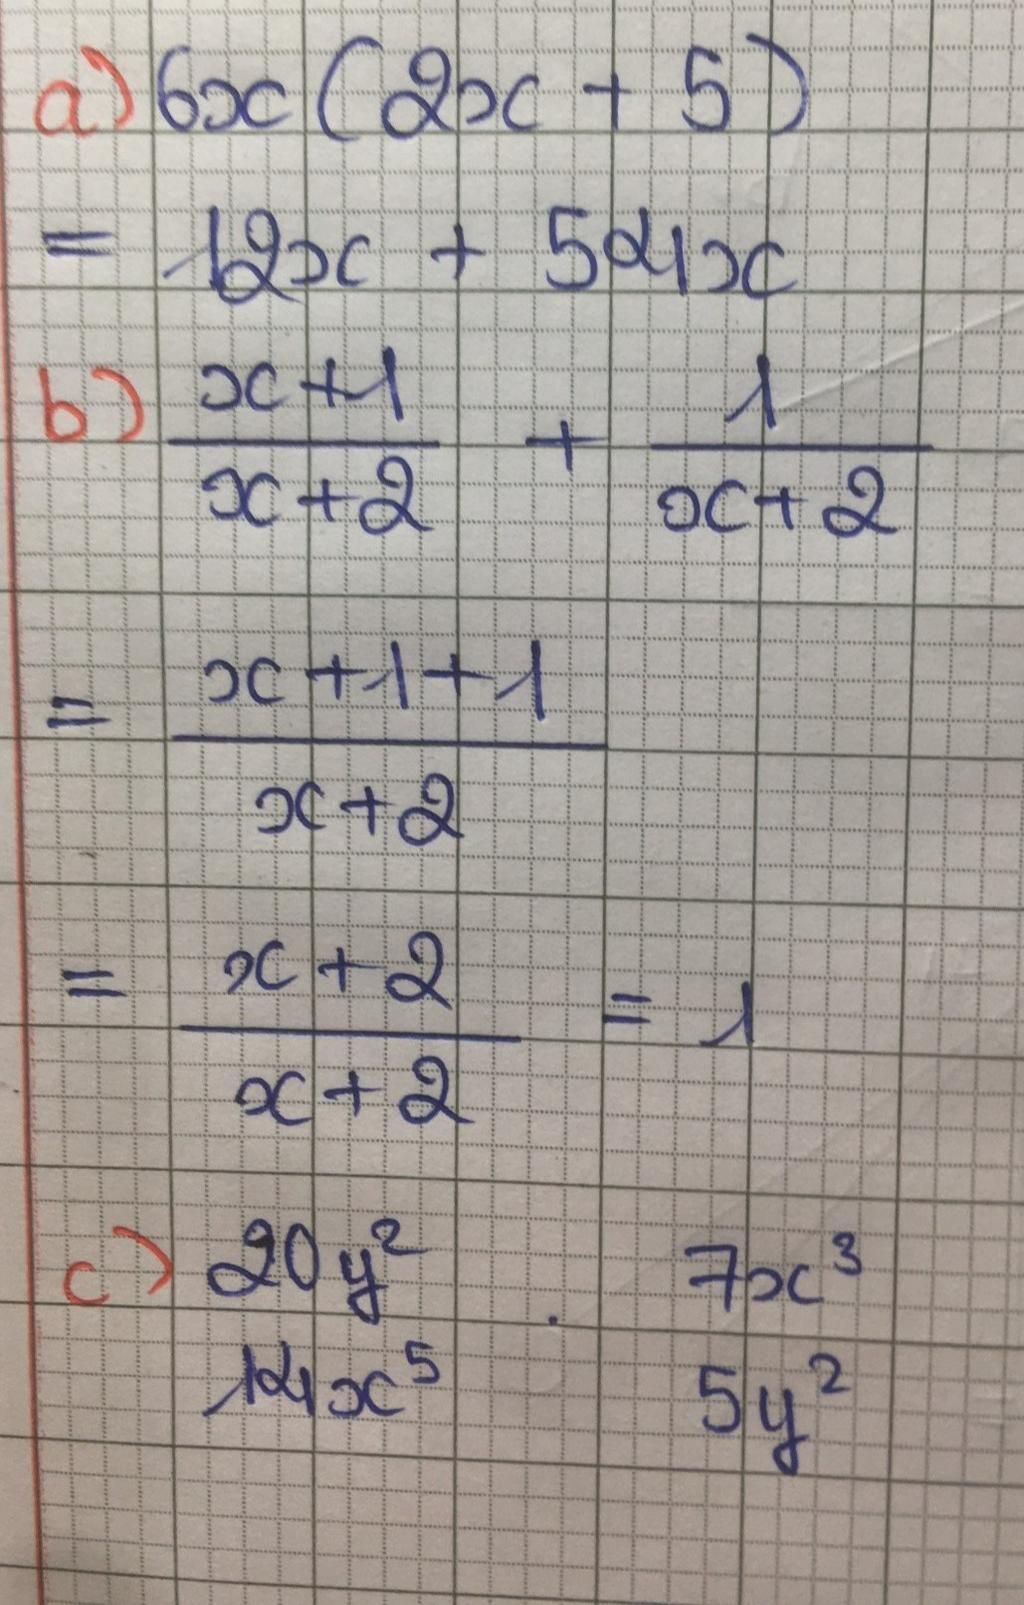 a) 6x(2x + 5)
= 12x + 54x
b) x+1 / x+2 + 1 / x+2
= x+1+1 / x+2
= x+2 / x+2 = 1
c) 20y² . 7x³
14x⁵ 5y²